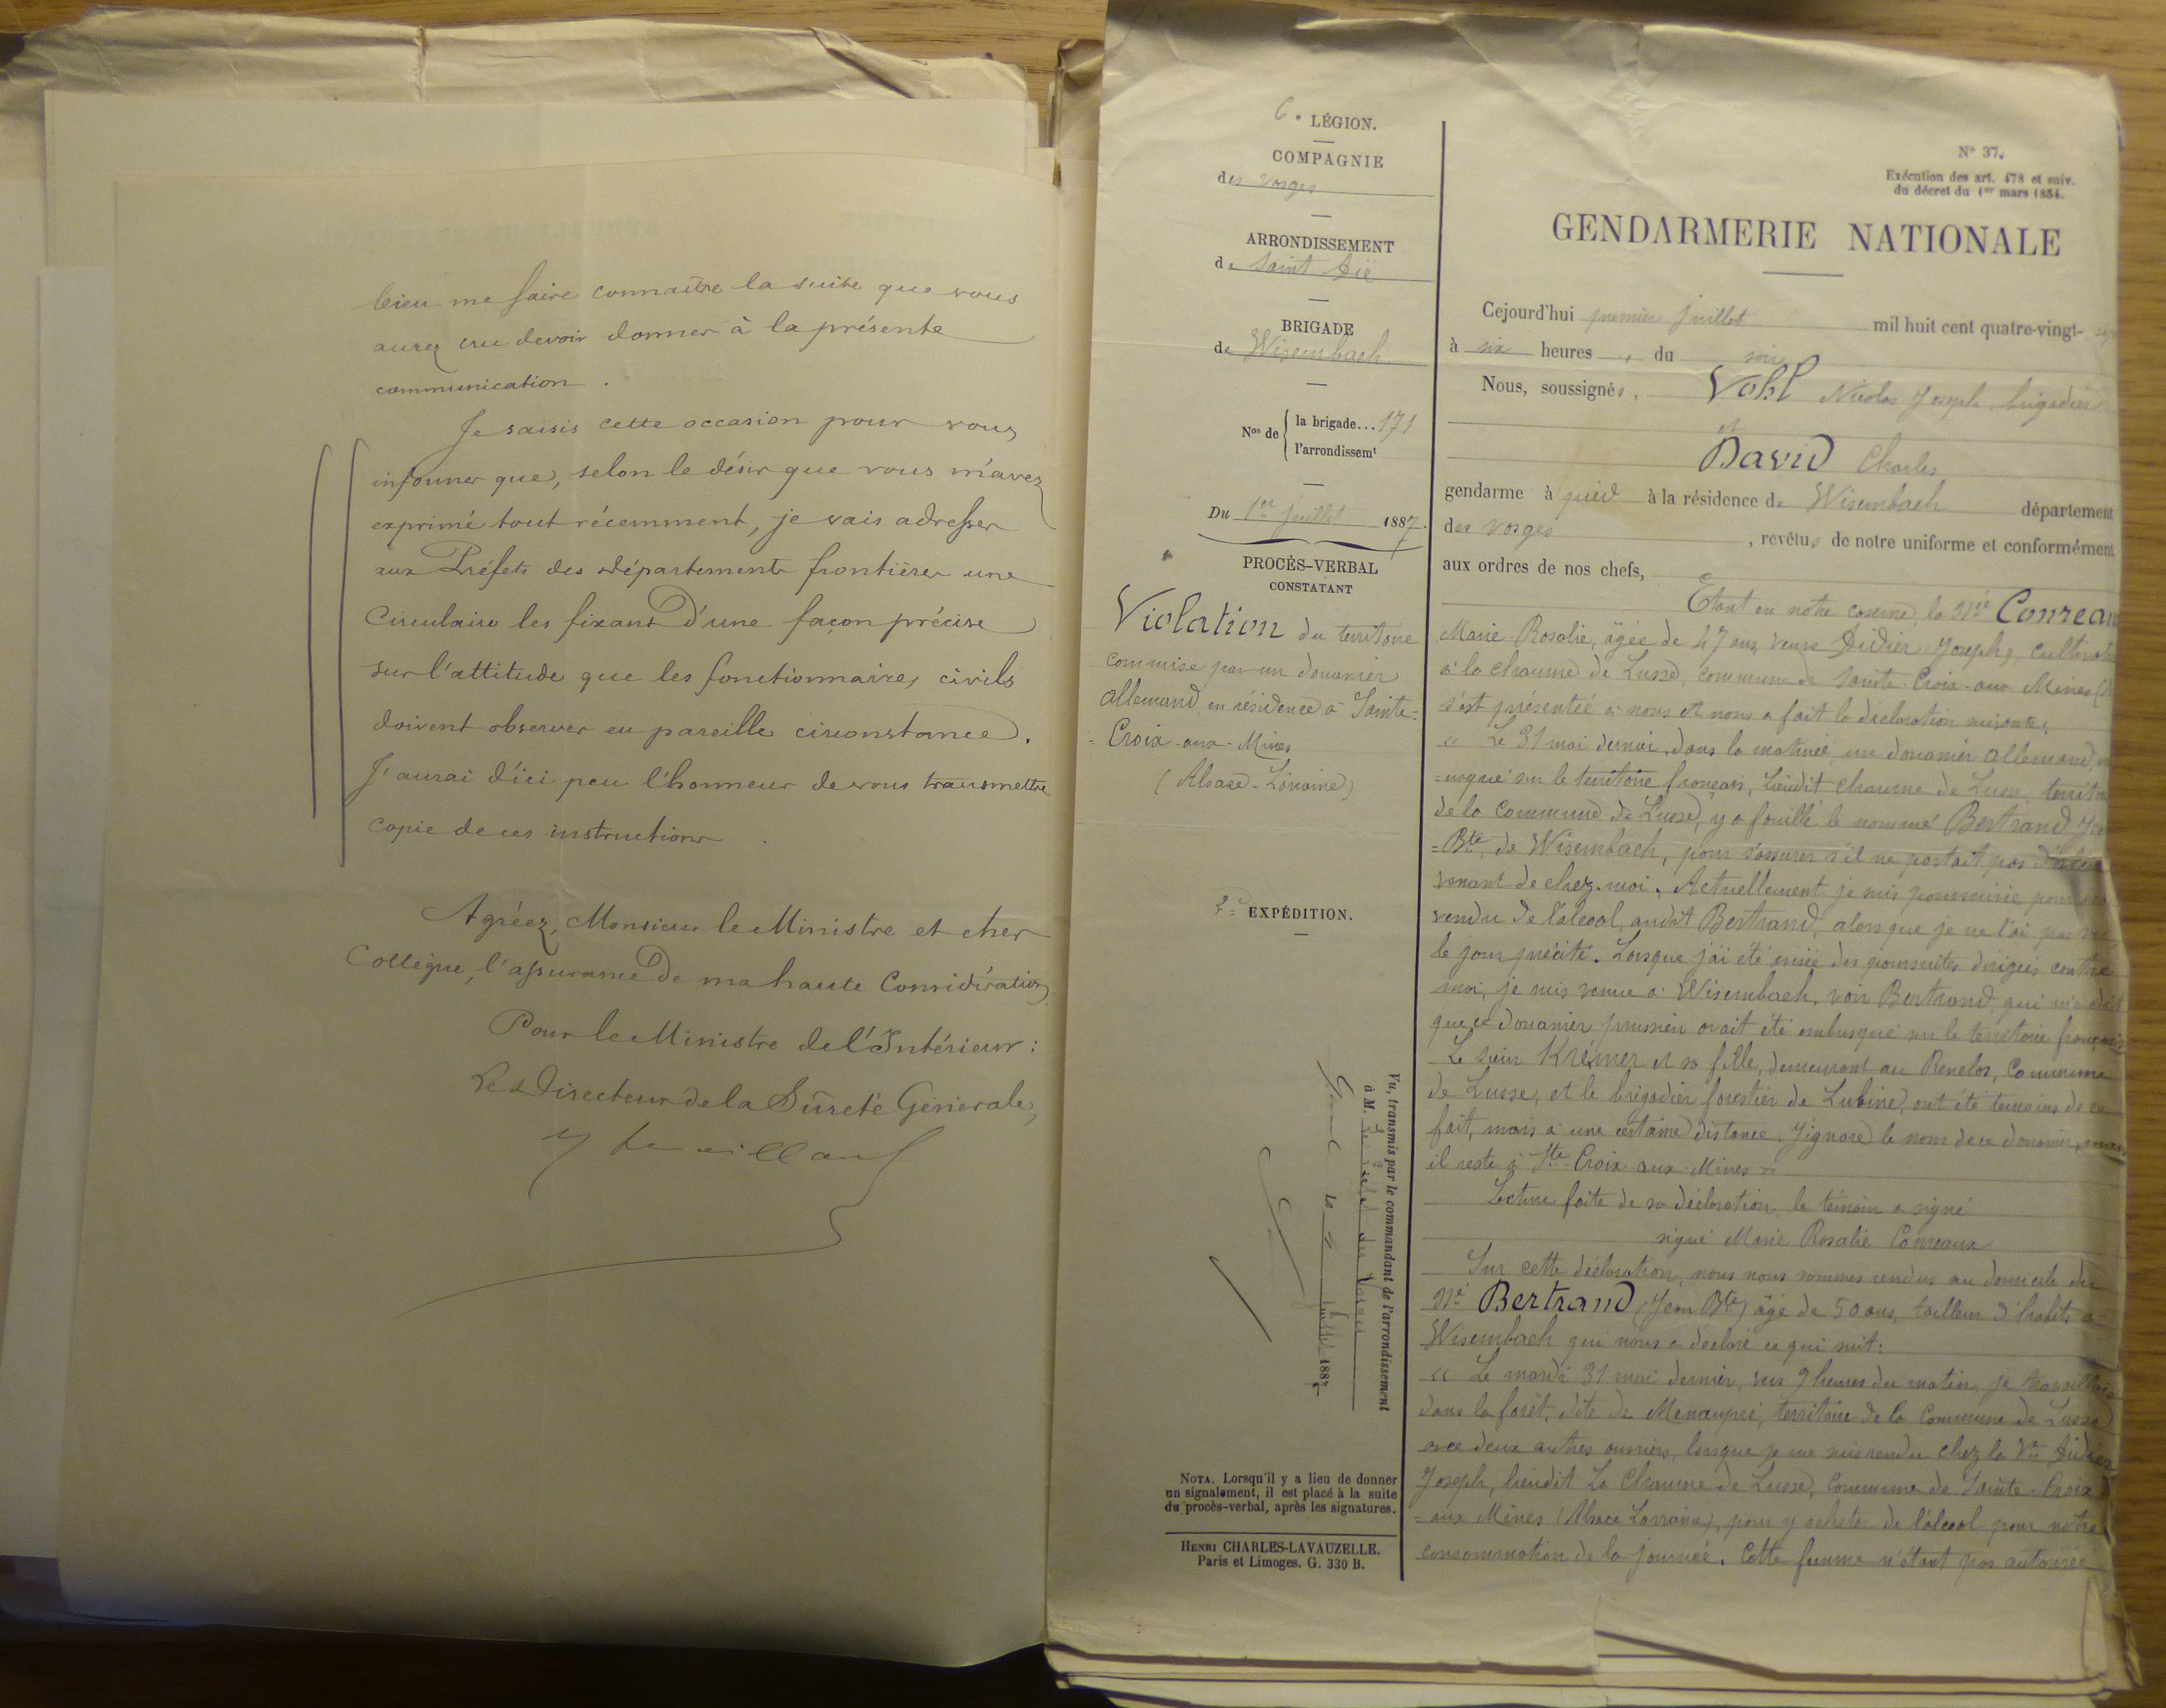 bien me faire connaître la suite que vous
aurez cru devoir donner à la présente
communication.
Je saisis cette occasion pour vous
informer que, selon le désir que vous m'avez
exprimé tout récemment, je vais adresser
aux Préfets des départements frontières une
circulaire les fixant d'une façon précise
sur l'attitude que les fonctionnaires civils
doivent observer en pareille circonstance.
J'aurai d'ici peu l'honneur de vous transmettre
copie de ces instructions.
Agréez, Monsieur le Ministre et cher
Collègue, l'assurance de ma haute Considération.
Pour le Ministre de l'Intérieur :
Le Directeur de la Sûreté Générale,
6e LÉGION.
COMPAGNIE
des Vosges
ARRONDISSEMENT
de Saint Dié
BRIGADE
de Wisembach
Nos de { la brigade... 171
l'arrondissemt
Du 1er juillet 1887.
PROCÈS-VERBAL
CONSTATANT
Violation du territoire
commise par un douanier
allemand en résidence à Sainte-
Croix-aux-Mines
(Alsace-Lorraine)
2e EXPÉDITION.
Vu, transmis par le commandant de l'arrondissement
à M. le des Vosges
Le 2 juillet 1887
NOTA. Lorsqu'il y a lieu de donner
un signalement, il est placé à la suite
du procès-verbal, après les signatures.
HENRI CHARLES-LAVAUZELLE.
Paris et Limoges. G. 330 B.
N° 37.
Exécution des art. 478 et suiv.
du décret du 1er mars 1854.
GENDARMERIE NATIONALE
Cejourd'hui premier juillet mil huit cent quatre-vingt-
à six heures du soir
Nous, soussignés, Vohl Nicolas Joseph, brigadier
et
David Charles
gendarme à pied à la résidence de Wisembach département
des Vosges, revêtus de notre uniforme et conformément
aux ordres de nos chefs,
Etant en notre caserne, la née Conreaux
Marie Rosalie, âgée de 47 ans, veuve Didier Joseph, cultivatrice
à la chaume de Lusse, commune de Sainte-Croix-aux-Mines
s'est présentée à nous et nous a fait la déclaration suivante,
« Le 31 mai dernier, dans la matinée, un douanier allemand,
=usqué sur le territoire français, lieudit chaume de Lusse, territoire
de la commune de Lusse, y a fouillé le nommé Bertrand
=Bte, de Wisembach, pour s'assurer s'il ne portait pas d'alcool
venant de chez-moi. Actuellement je suis poursuivie pour
vendu de l'alcool, audit Bertrand, alors que je ne l'ai pas vu
le jour précité. Lorsque j'ai été avisée des poursuites dirigées contre
moi, je suis venue à Wisembach, voir Bertrand, qui m'a dit
que ce douanier prussien avait été embusqué sur le territoire français
Le sieur Krémer et sa fille, demeurant au Renelos, commune
de Lusse, et le brigadier forestier de Lubine, ont été témoins de ce
fait, mais à une certaine distance. J'ignore le nom de ce douanier, mais
il reste à Ste-Croix-aux-Mines »
Lecture faite de sa déclaration, le témoin a signé
signé Marie Rosalie Conreaux
Sur cette déclaration, nous nous sommes rendus au domicile du
né Bertrand (Jean Bte) âgé de 50 ans, tailleur d'habits à
Wisembach qui nous a déclaré ce qui suit :
« Le mardi 31 mai dernier, vers 9 heures du matin, je travaillais
dans la forêt, dite de Menaupré, territoire de la commune de Lusse
avec deux autres ouvriers, lorsque je me suis rendu chez la Ve Didier
Joseph, lieudit La Chaume de Lusse, commune de Sainte-Croix
=aux Mines (Alsace Lorraine), pour y acheter de l'alcool pour notre
consommation de la journée. Cette femme n'étant pas autorisée